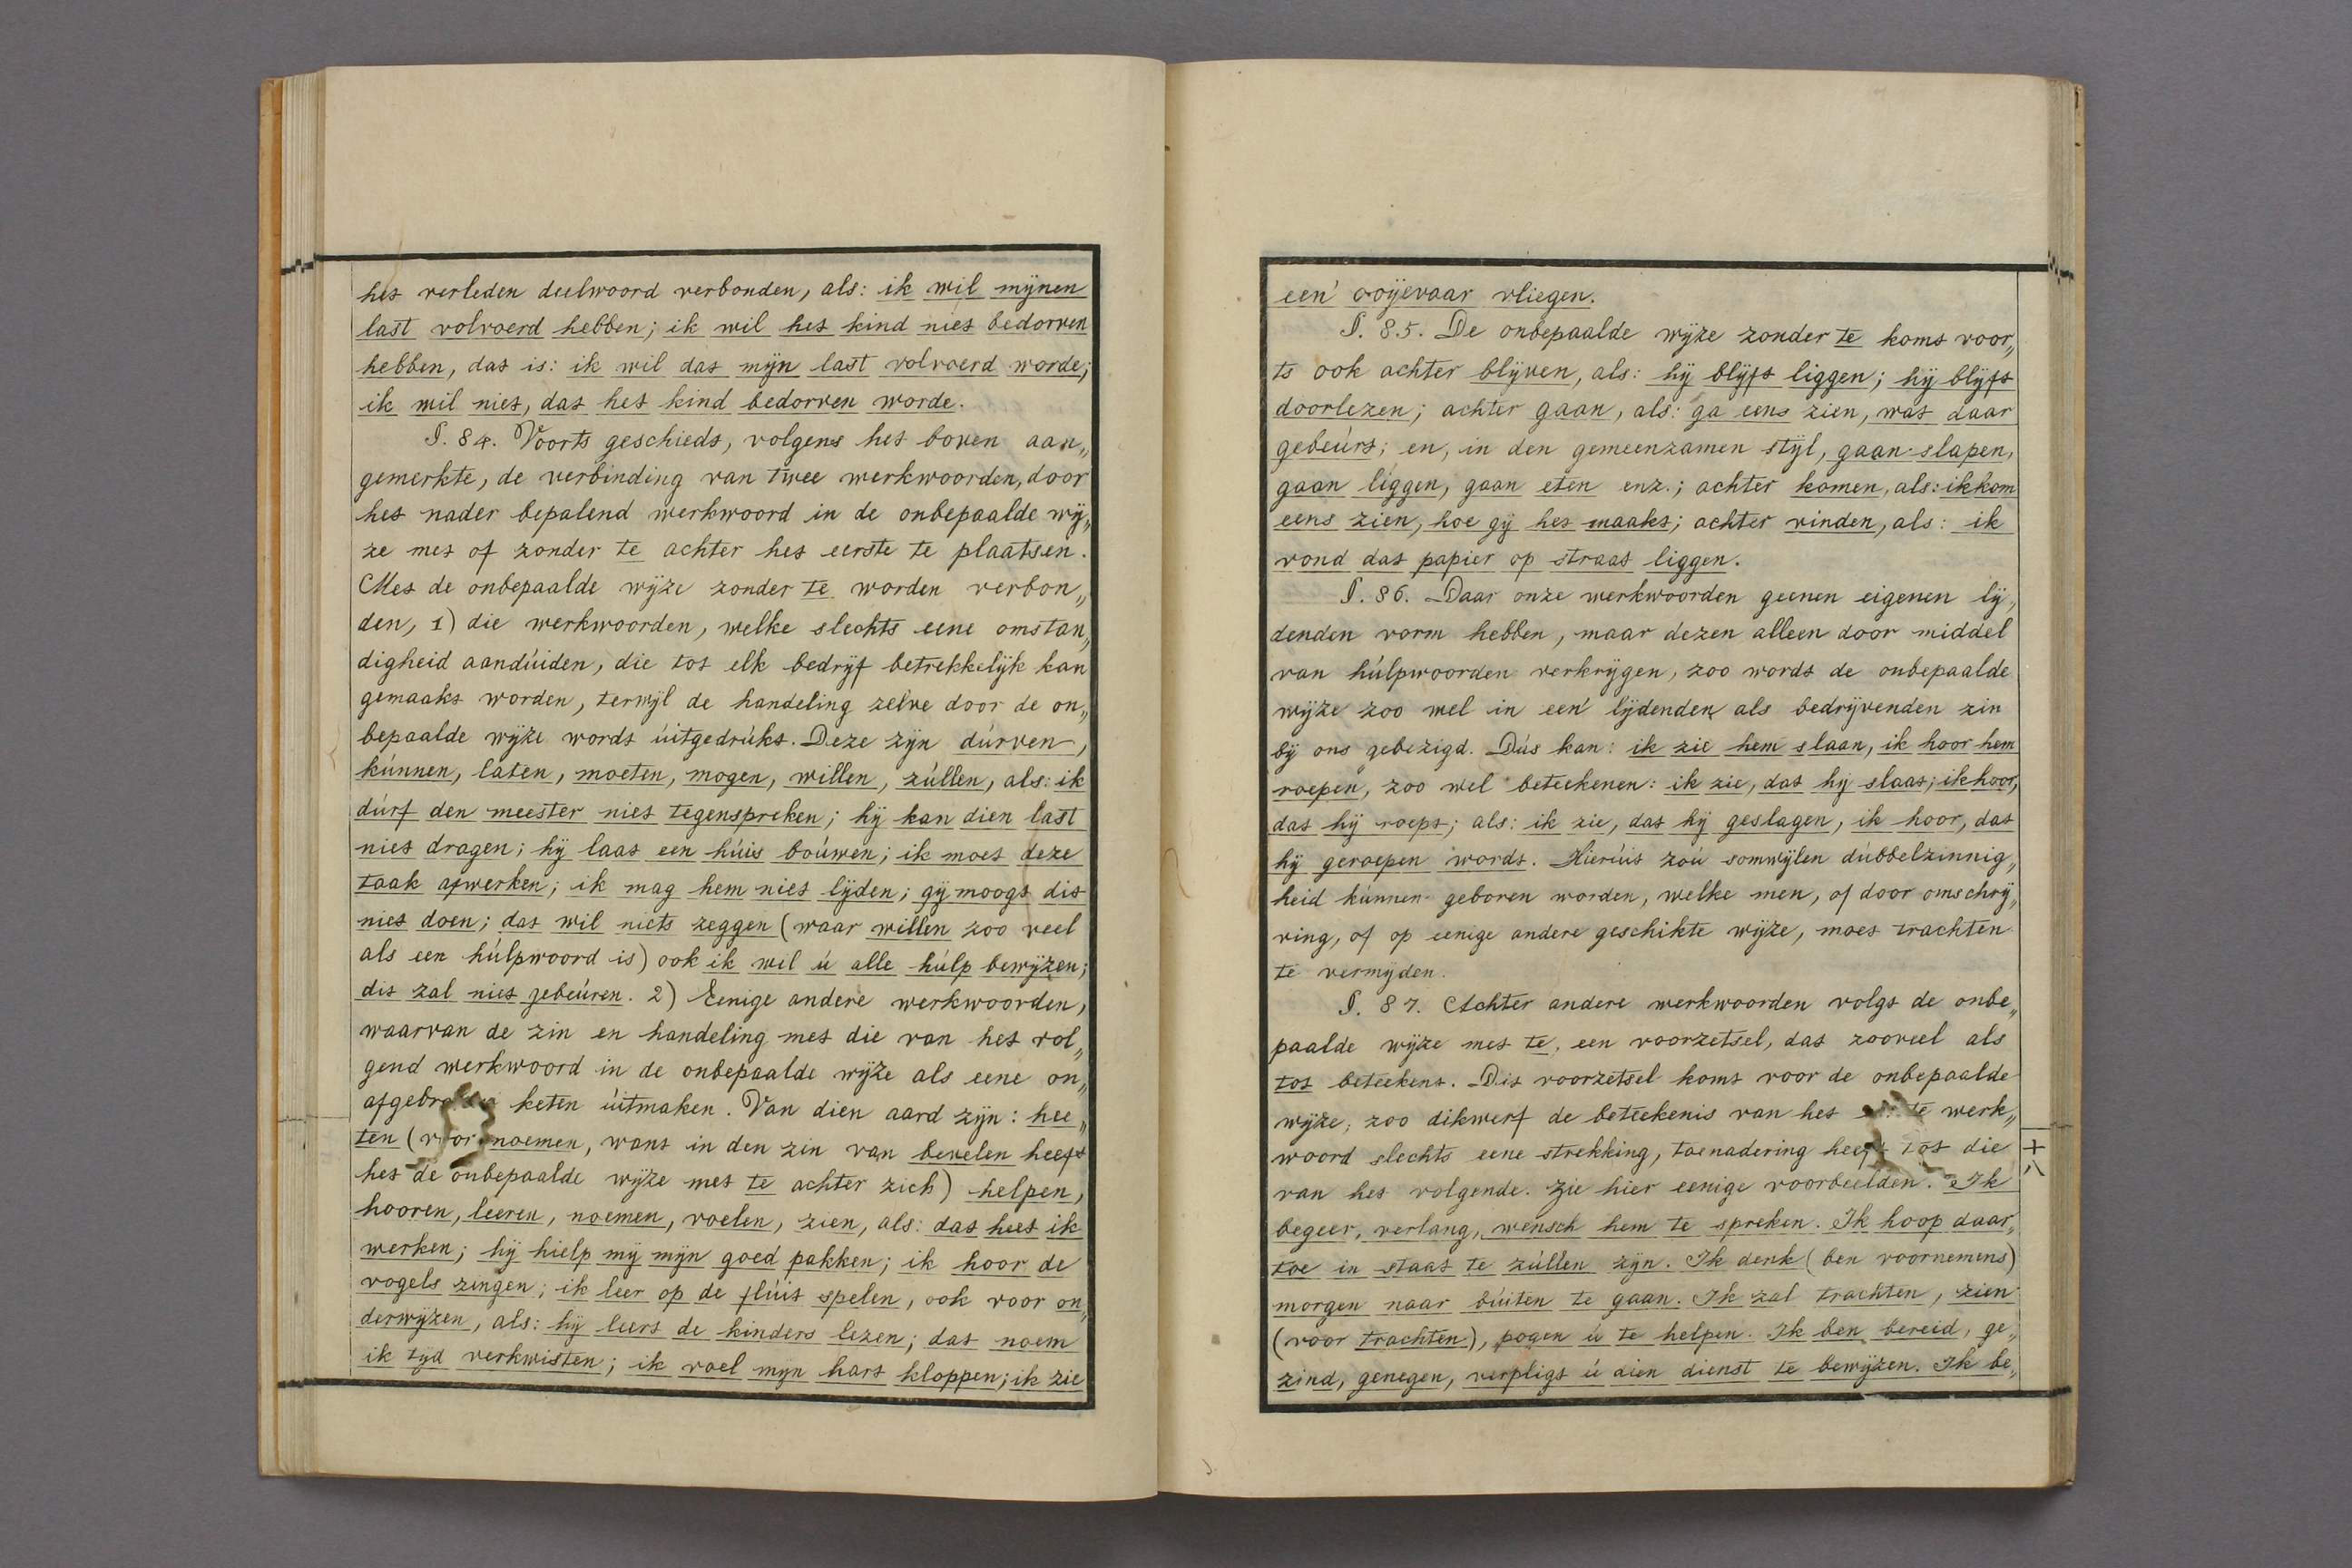 het verleden deelwoord verbonden, als: ik wil mijnen
last volvoerd hebben; ik wil het kind niet bedorven
hebben, dat is: ik wil dat mijn last volvoerd worde;
ik wil niet, dat het kind bedorven worde.
§. 84. Voorts geschiedt, volgens het boven aan„
gemerkte, de verbinding van twee werkwoorden, door
het nader bepalend werkwoord in de onbepaalde wij„
ze met of zonder te achter het eerste te plaatsen.
Met de onbepaalde wijze zonder te worden verbon„
den, 1) die werkwoorden, welke slechts eene omstan„
digheid aandúiden, die tot elk bedrijf betrekkelijk kan
gemaakt worden, terwijl de handeling zelve door de on„
bepaalde wijze wordt úitgedrúkt. Deze zijn dúrven,
kúnnen, laten, moeten, mogen, willen, zúllen, als: ik
dúrf den meester niet tegenspreken; hij kan dien last
niet dragen; hij laat een húis boúwen; ik moet deze
taak afwerken; ik mag hem niet lijden; gij moogt dit
niet doen; dat wil niets zeggen (waar willen zoo veel
als een húlpwoord is) ook ik wil ú alle húlp bewijzen;
dit zal niet gebeúren. 2) Eenige andere werkwoorden,
waarvan de zin en handeling met die van het vol„
gend werkwoord in de onbepaalde wijze als eene on„
afgebroken keten úitmaken. Van dien aard zijn: hee„
ten (voor noemen, want in den zin van bevelen heeft
het de onbepaalde wijze met te achter zich) helpen,
hooren, leeren, noemen, voelen, zien, als: dat heet ik
werken; hij hielp mij mijn goed pakken; ik hoor de
vogels zingen; ik leer op de flúit spelen, ook voor on„
derwijzen, als: hij leert de kinders lezen; dat noem
ik tijd verkwisten; ik voel mijn hart kloppen; ik zie
een' ooijevaar vliegen.
§. 85. De onbepaalde wijze zonder te komt voor„
ts ook achter blijven, als: hij blijft liggen; hij blijft
doorlezen; achter gaan, als: ga eens zien, wat daar
gebeúrt; en, in den gemeenzamen stijl, gaan slapen,
gaan liggen, gaan eten enz.; achter komen, als: ik kom
eens zien, hoe gij het maakt; achter vinden, als: ik
vond dat papier op straat liggen.
§. 86. Daar onze werkwoorden geenen eigenen lij„
denden vorm hebben, maar dezen alleen door middel
van húlpwoorden verkrijgen, zoo wordt de onbepaalde
wijze zoo wel in een' lijdenden als bedrijvenden zin
bij ons gebezigd. Dús kan: ik zie hem slaan, ik hoor hem
roepen, zoo wel beteekenen: ik zie, dat hij slaat; ik hoor,
dat hij roept; als: ik zie, dat hij geslagen, ik hoor, dat
hij geroepen wordt. Hierúit zoú somwijlen dúbbelzinnig„
heid kúnnen geboren worden, welke men, of door omschrij„
ving, of op eenige andere geschikte wijze, moet trachten
te vermijden.
§. 87. Achter andere werkwoorden volgt de onbe„
paalde wijze met te, een voorzetsel, dat zooveel als
tot beteekent. Dit voorzetsel komt voor de onbepaalde
wijze, zoo dikwerf de beteekenis van het eerste werk„
woord slechts eene strekking, toenadering heeft tot die
van het volgende. Zie hier eenige voorbeelden. Ik
begeer, verlang, wensch hem te spreken. Ik hoop daar„
toe in staat te zúllen zijn. Ik denk (ben voornemens)
morgen naar búiten te gaan. Ik zal trachten, zien
(voor trachten), pogen ú te helpen. Ik ben bereid, ge„
zind, genegen, verpligt ú dien dienst te bewijzen. Ik be„
十八